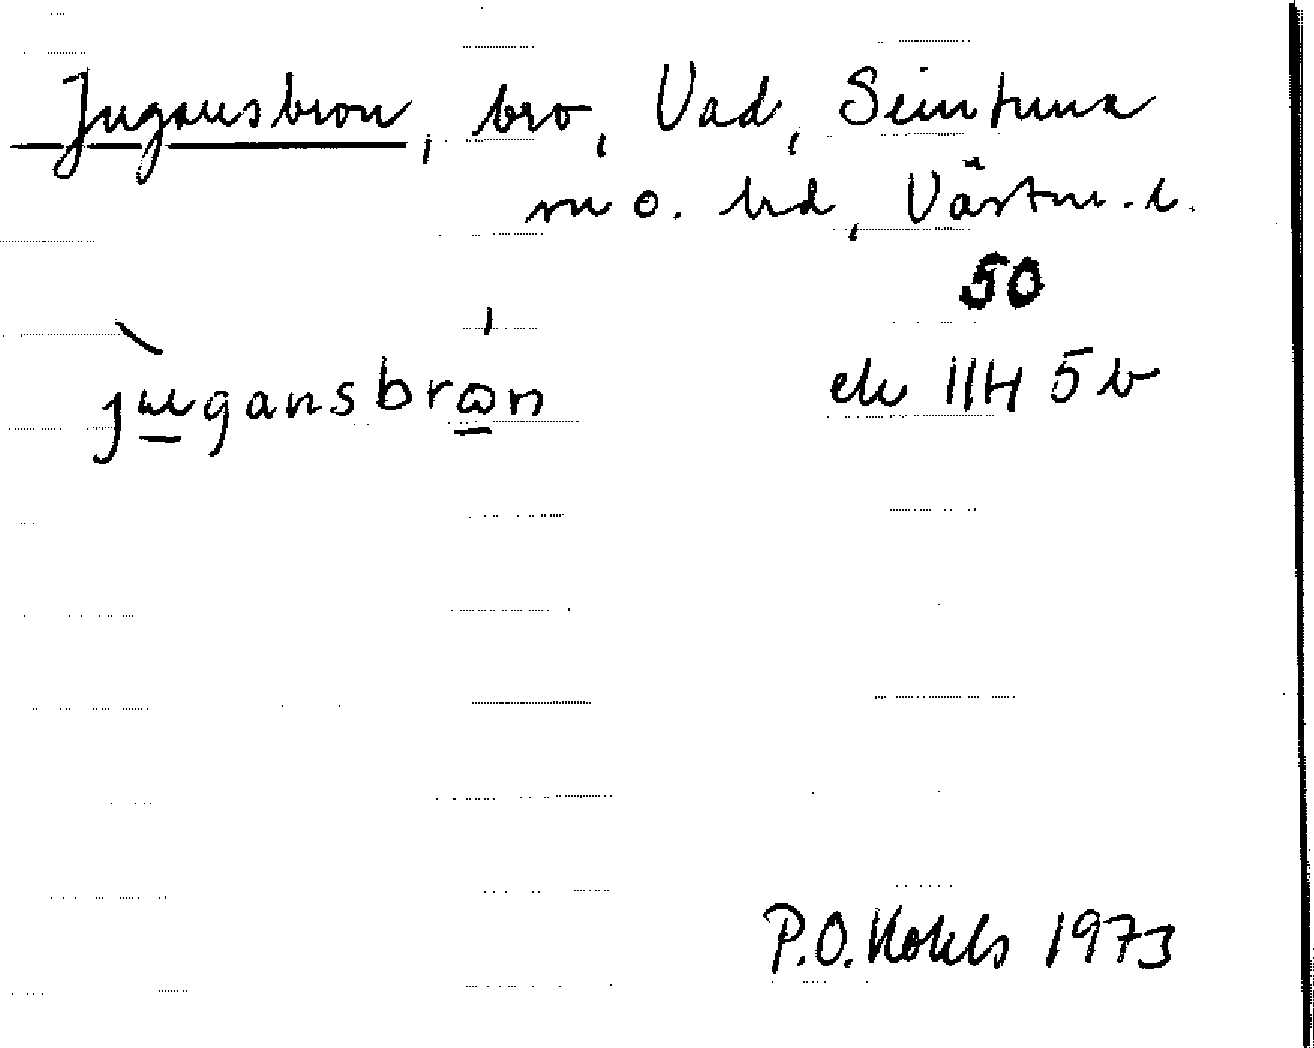 Jugansbron, bro, Vad, Semtuna
sn o. hd, Västm. l.
50
jugansbron
ek 11H 5b
P.O. 1973